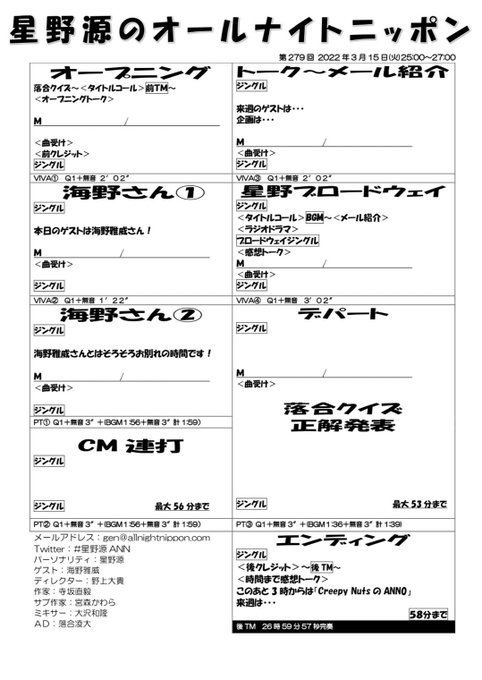 星野源のオールナイトニッポン
第279回 2022年3月15日(火)25:00～27:00
オープニング
落合クイズ～＜タイトルコール＞前TM～
＜オープニングトーク＞
M /
＜曲受け＞
＜前クレジット＞
ジングル
VIVA① Q1＋無音 2’02”
海野さん①
ジングル
本日のゲストは海野雅威さん！
M /
＜曲受け＞
ジングル
VIVA② Q1＋無音 1’22”
海野さん②
ジングル
海野雅威さんとはそろそろお別れの時間です！
M /
＜曲受け＞
ジングル
PT① Q1＋無音3”＋(BGM1:56＋無音3”計1:59)
CM連打
ジングル
ジングル 最大56分まで
PT② Q1＋無音3”＋(BGM1:56＋無音3”計1:59)
メールアドレス：gen@allnightnippon.com
Twitter：#星野源ANN
パーソナリティ：星野源
ゲスト：海野雅威
ディレクター：野上大貴
作家：寺坂直毅
サブ作家：宮森かわら
ミキサー：大沢和隆
AD：落合凌大
トーク～メール紹介
ジングル
来週のゲストは・・・
企画は・・・
M /
＜曲受け＞
ジングル
VIVA③ Q1＋無音 2’02”
星野ブロードウェイ
ジングル
＜タイトルコール＞BGM～＜メール紹介＞
＜ラジオドラマ＞
ブロードウェイジングル
＜感想トーク＞
M /
＜曲受け＞
ジングル
VIVA④ Q1＋無音 3’02”
デパート
ジングル
M /
＜曲受け＞
落合クイズ
正解発表
ジングル 最大53分まで
PT③ Q1＋無音3”＋(BGM1:36＋無音3”計1:39)
エンディング
ジングル
＜後クレジット＞～後TM～
＜時間まで感想トーク＞
このあと3時からは「Creepy NutsのANN0」
来週は・・・
58分まで
後TM 26時59分57秒完奏